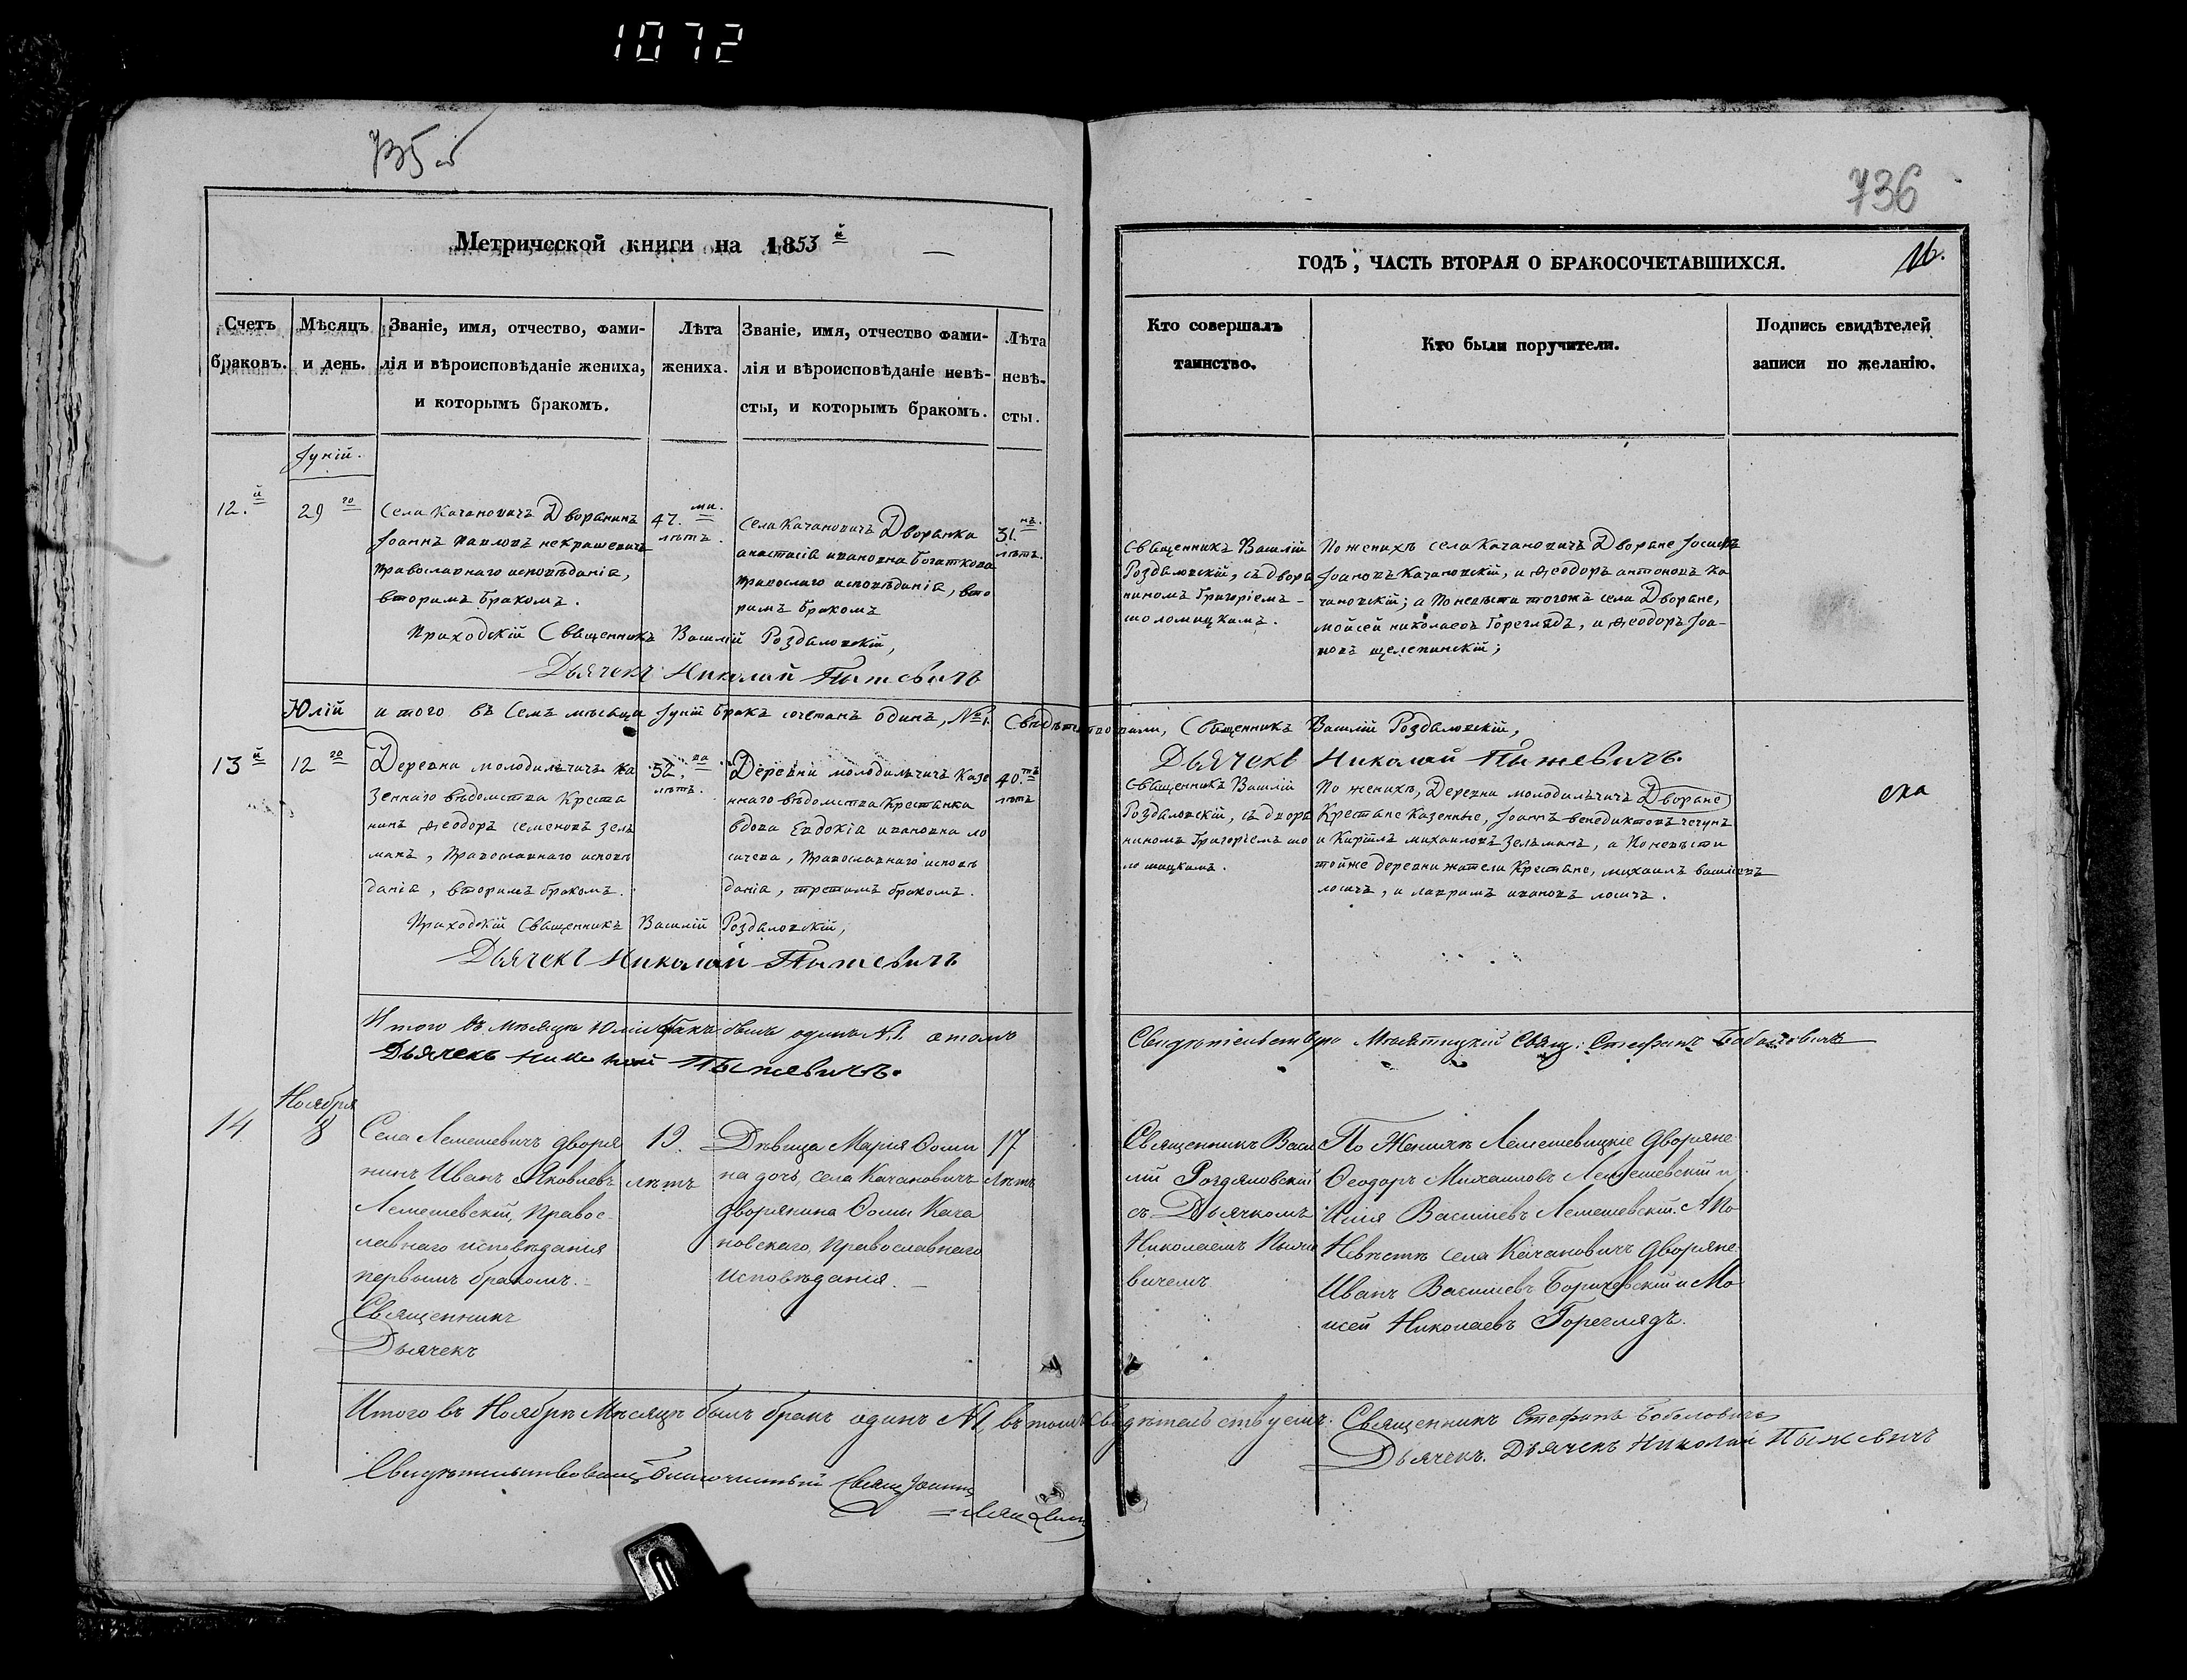 1072
735 об
736
Метрической книги на 1853й
ГОДЪ, ЧАСТЬ ВТОРАЯ О БРАКОСОЧЕТАВШИХСЯ.
16.
Счетъ
браковъ.
Мѣсяцъ
и день.
Званіе, имя, отчество, фами-
лія и вѣроисповѣданіе жениха,
и которымъ бракомъ.
Лѣта
жениха.
Званіе, имя, отчество фами-
лія и вѣроисповѣданіе невѣ-
сты, и которымъ бракомъ.
Лѣта
невѣ-
сты.
Кто совершалъ
таинство.
Кто были поручители.
Подпись свидѣтелей
записи по желанію.
Іуній.
12.й
29го
Села Качановичъ Дворанинъ
Іоаннъ Павловъ Некрашевичъ
Православнаго исповѣданія,
вторимъ бракомъ.
47.ми.
лѣтъ.
Села Качановичъ Дворанка
Анастасіа Ивановна Богаткова
Православнаго исповѣданія, вто
римъ бракомъ
31.нъ.
лѣтъ.
Священникъ Василій
Роздаловскій, съ двора
ниномъ Григоріемъ
шоломицкимъ.
По женихѣ села Качановичъ Дворане Іосифъ
Іоановъ Качановскій, и Ѳеодоръ Антоновъ Ка
чановскій; а По невѣсти тогожъ села Дворане,
Мойсей Николаевъ Гореглядъ, и Ѳеодоръ Іоа-
новъ щелепинскій;
Приходскій Священникъ Василій Роздаловскій,
Дьячекъ Николай Пыжевичъ
Юлій
итого въ Семъ мѣсяцѣ Іуній бракъ сочетанъ одинъ, №1. Свидѣтельствовали, Священникъ Василій Роздаловскій,
Дьячекъ Николай Пыжевичъ.
13й
12го
Деревни Молодильчичъ Ка
зеннаго вѣдомства Креста
нинъ Ѳеодоръ Семеновъ Зель
манъ, Православнаго исповѣ
данія, вторимъ бракомъ.
52.ва
лѣтъ.
Деревни Молодильчичъ Казе
ннаго вѣдомства Крестанка
вдова Евдокіа Ивановна Ло
сичева, Православнаго исповѣ
данія, третимъ бракомъ.
40.тъ
лѣтъ
Священникъ Василій
Роздаловскій, съ двора
ниномъ Григоріемъ шо
ломицкимъ.
По женихѣ, Деревни Молодильчичъ Дворане
Крестане Казенные, Іоаннъ Венедиктовъ чечунъ
и Кирилъ Михаиловъ Зельманъ, а По невѣсти
тойже деревни жители Крестане, Михаилъ Василіевъ
лосичъ, и Лавримъ Ивановъ лосичъ.
Приходскій Священникъ Василій Роздаловскій,
Дьячекъ Николай Пыжевичъ
Итого въ мѣсяцѣ Юліи бракъ былъ одинъ №1. о томъ
Свидѣтельствую Священ: Стефанъ Боболовичъ
Дьячекъ Николай Пыжевичъ.
14
Ноября
8
Села Лемешевичъ дворя
нинъ Иванъ Яковлевъ
Лемешевскій, Правос-
лавнаго исповѣданія
первымъ бракомъ.
Священникъ
Дьячекъ
19.
лѣтъ
Дѣвица Марія Ѳоми
на дочь, села Качановичъ
дворянина Ѳомы Кача
новскаго, православнаго
исповѣданія.
17
лѣтъ
Священникъ Васи
лій Роздяловскій
съ Дьячкомъ
Николаемъ Пыже
вичемъ
По Женихѣ Лемешевицкіе дворяне
Ѳеодоръ Михаиловъ Лемешевскій и
Илія Василіевъ Лемешевскій. А по
Невѣстѣ села Качановичъ дворяне
Иванъ Василіевъ Боричевскій и Мо
исей Николаевъ Гореглядъ.
Итого въ Ноябрѣ Мѣсяцѣ былъ бракъ одинъ №1, въ томъ Свидѣтельствуемъ: Священникъ Стефанъ Боболовичъ
Дьячекъ. Дьячекъ Николай Пыжевичъ
Свидѣтельствовалъ Благочинный Священ Іоаннъ